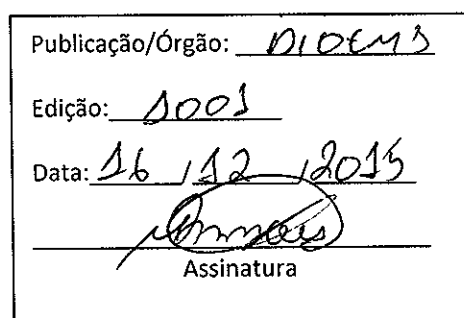 Publicação/Órgão: DIOEMS
Edição: 1001
Data: 16 / 12 / 2015
Assinatura